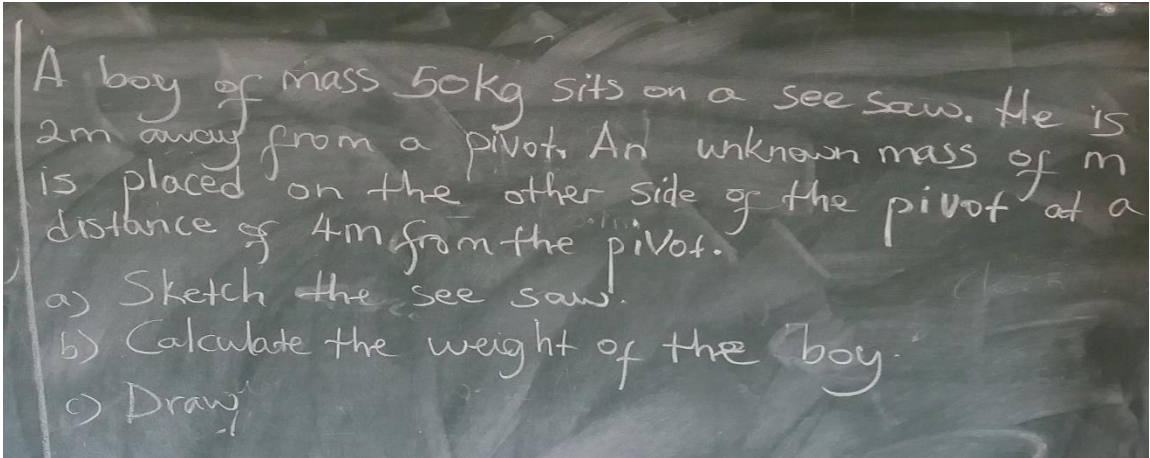 A boy of mass 50kg sits on a see saw. He is
2m away from a pivot. An unknown mass of m
is placed on the other side of the pivot at a
distance of 4m from the pivot.
a) Sketch the see saw.
b) Calculate the weight of the boy.
c) Draw